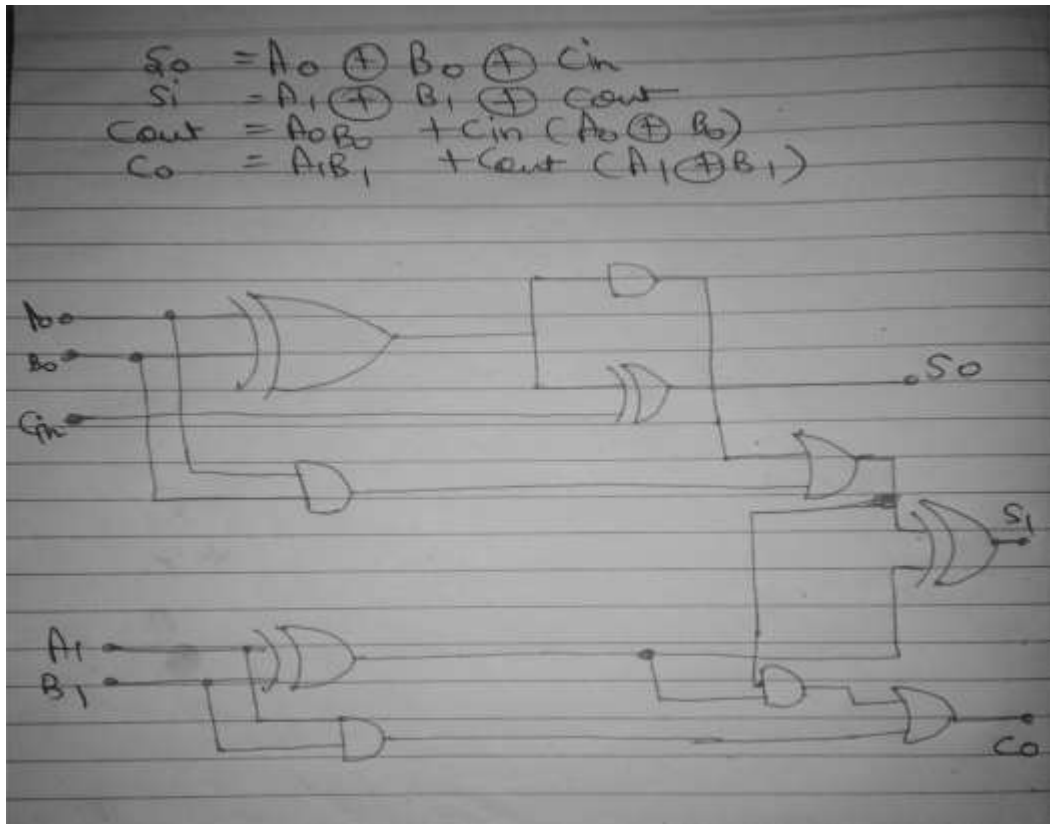 S0 = A0 ⊕ B0 ⊕ Cin
Si = A1 ⊕ B1 ⊕ Cout
Cout = A0B0 + Cin (A0 ⊕ B0)
Co = A1B1 + Cout (A1 ⊕ B1)
A0
B0
Cin
S0
S1
A1
B1
Co